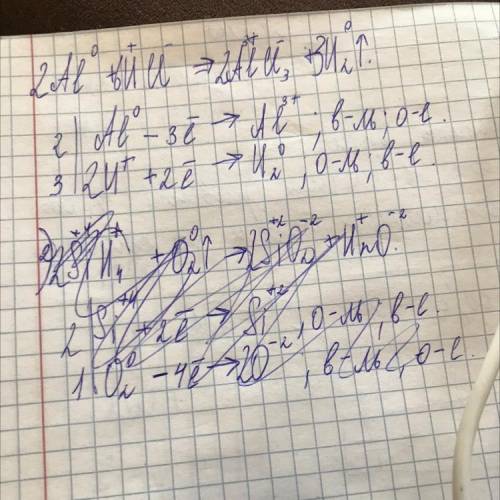 2Al⁰ + 6H⁺Cl⁻ → 2Al³⁺Cl₃⁻ + 3H₂⁰↑.
2| Al⁰ – 3ē → Al³⁺ ; в-ль; о-е.
3| 2H⁺ + 2ē → H₂⁰ ; о-ль; в-е.
+ O₂⁰↑ → 2Si⁺²O₂⁻² + H₂⁺O⁻².
2 Si⁺⁴ + 2ē → Si⁺² ; о-ль; в-е.
1| O₂⁰ – 4ē → 2O⁻² ; в-ль; о-е.